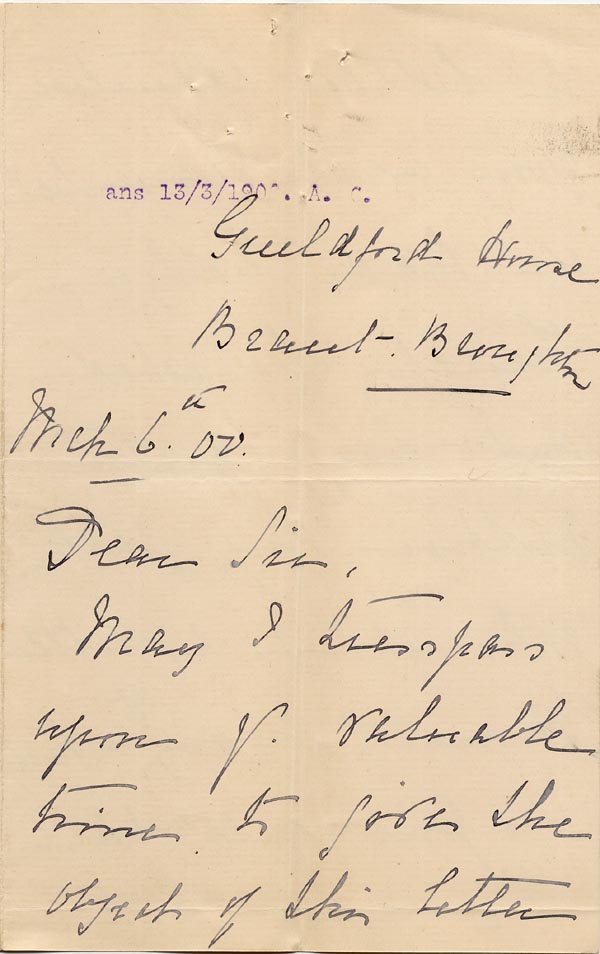 ans 13/3/1900. A. C.
Guildford House
Brant-Broughton
Mch 6.th 00.
Dear Sir,
May I tresspass
upon yr. valuable
time to give the
object of this letter